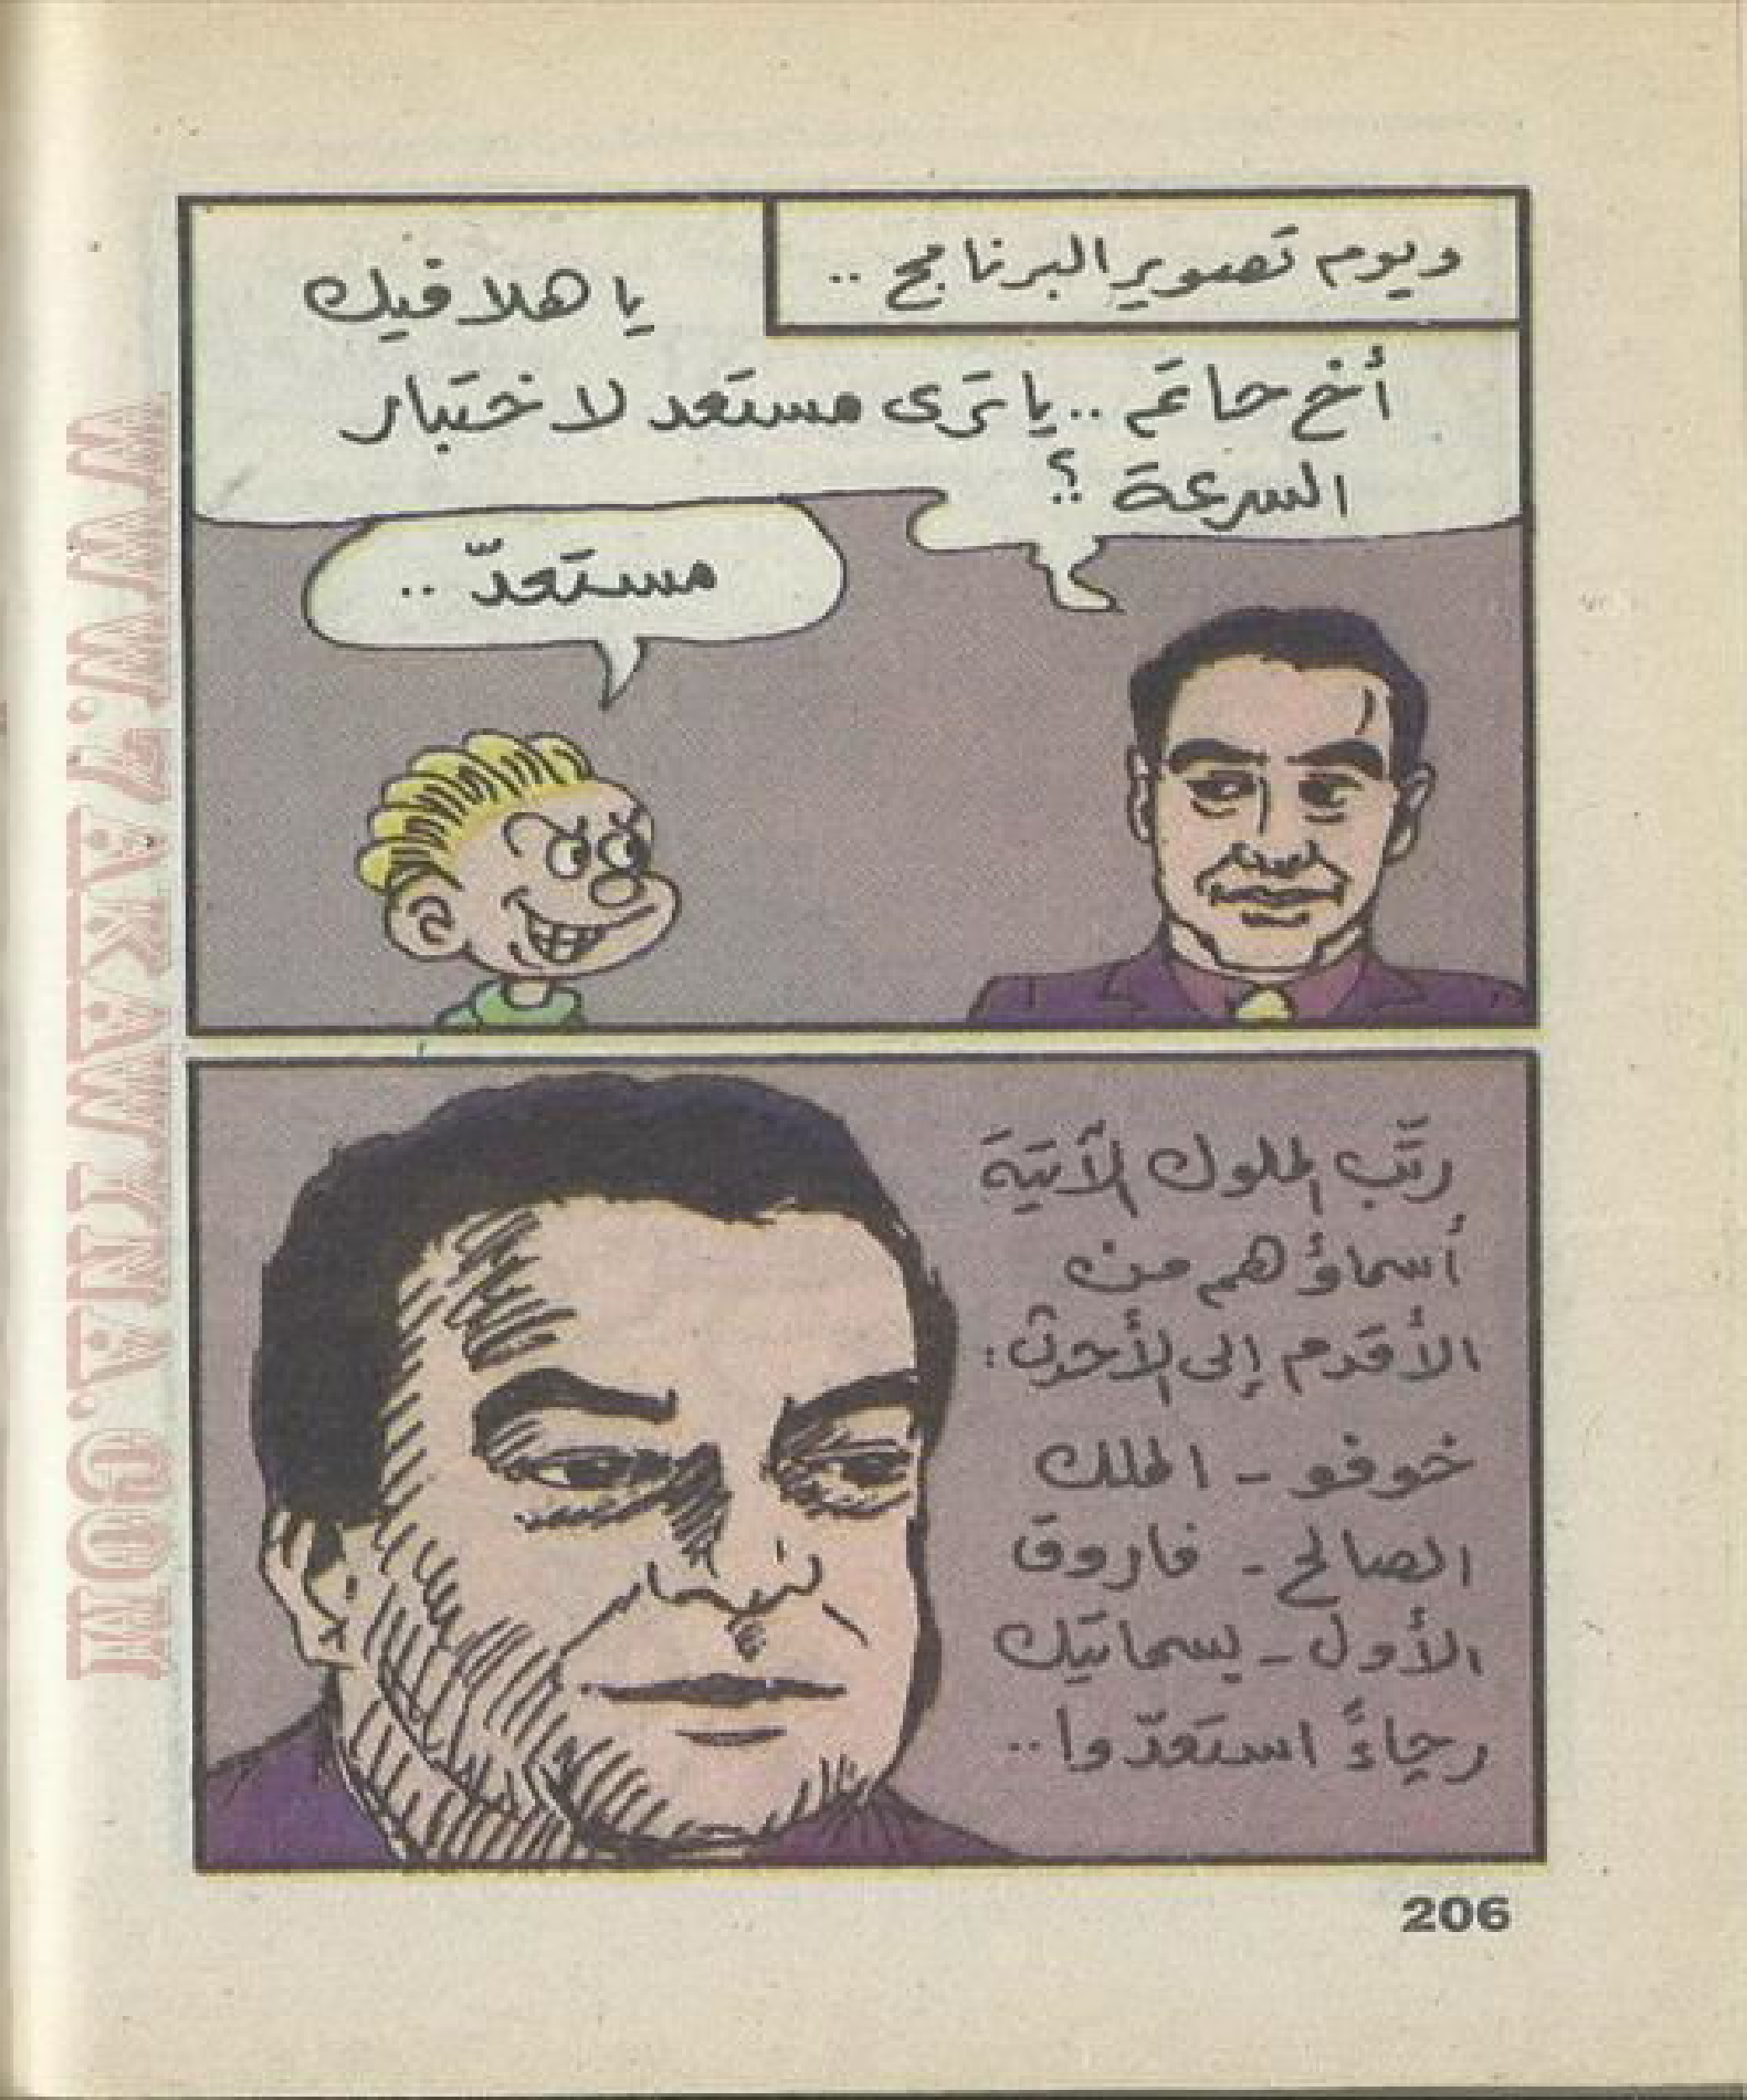 ويوم تصوير البرنامج ..
يا هلا فيك
أخ حاتم .. يا ترى مستعد لاختبار
السرعة ؟..
مستعدّ ..
رتّب الملوك الآتية
أسماؤهم من
الأقدم إلى الأحدث :
خوفو - الملك
الصالح - فاروق
الأول - بسماتيك
رجاءً استعدّوا ..
206
WWW.ARABCOMICS